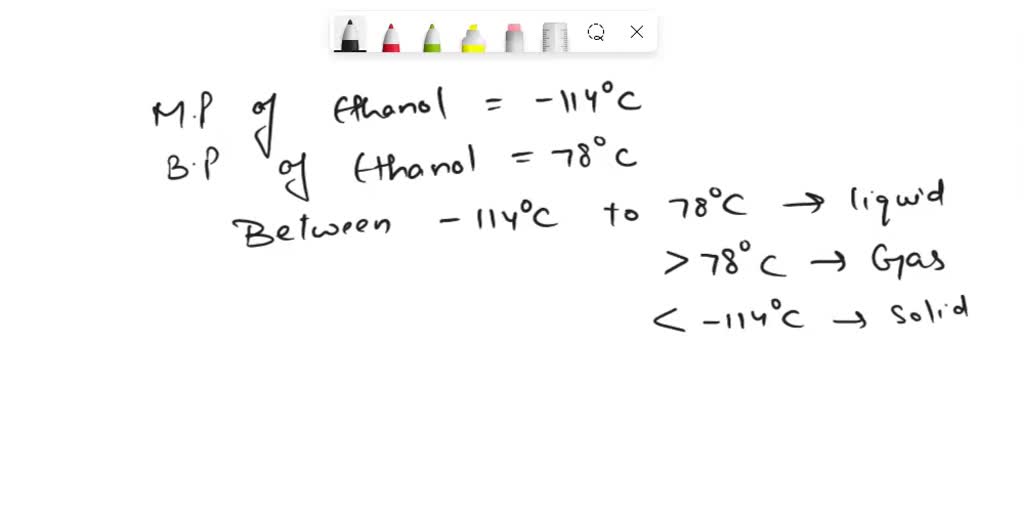 M.P of Ethanol = -114°C
B.P of Ethanol = 78°C
Between -114°C to 78°C → liquid
> 78°C → Gas
< -114°C → Solid